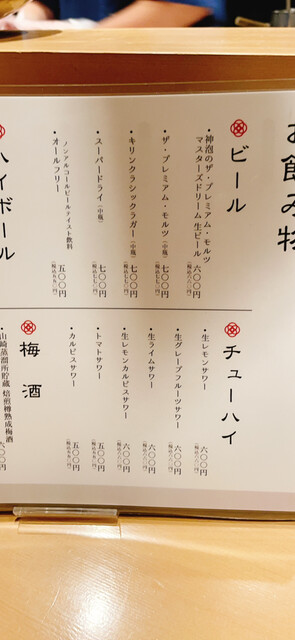 お飲み物
ビール
・神泡のザ・プレミアム・モルツ
マスターズドリーム 生ビール
六〇〇円
・ザ・プレミアム・モルツ（中瓶）
七〇〇円
（税込七七〇円）
・キリンクラシックラガー（中瓶）
七〇〇円
（税込七七〇円）
・スーパードライ（中瓶）
七〇〇円
（税込七七〇円）
ノンアルコールビールテイスト飲料
・オールフリー
五〇〇円
（税込五五〇円）
ハイボール
チューハイ
・生レモンサワー
六〇〇円
・生グレープフルーツサワー
六〇〇円
・生ライムサワー
六〇〇円
・生レモンカルピスサワー
六〇〇円
・トマトサワー
五〇〇円
・カルピスサワー
五〇〇円
梅酒
・山崎蒸溜所貯蔵 焙煎樽熟成梅酒